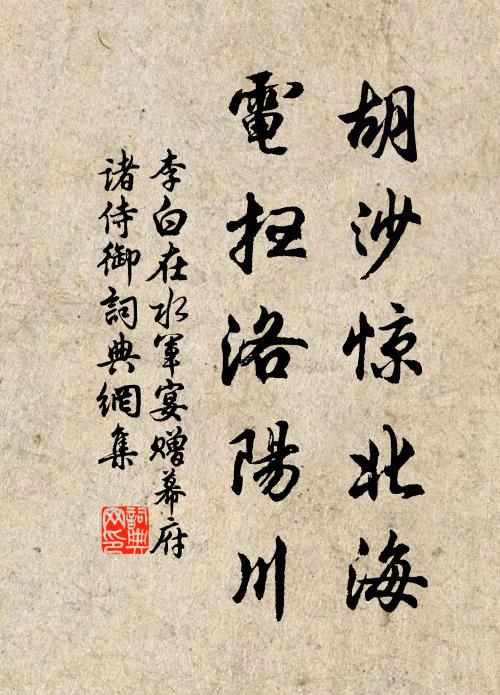 胡沙惊北海
電扫洛陽川
李白在水軍宴赠幕府
諸侍御詞典網集
詞典网印